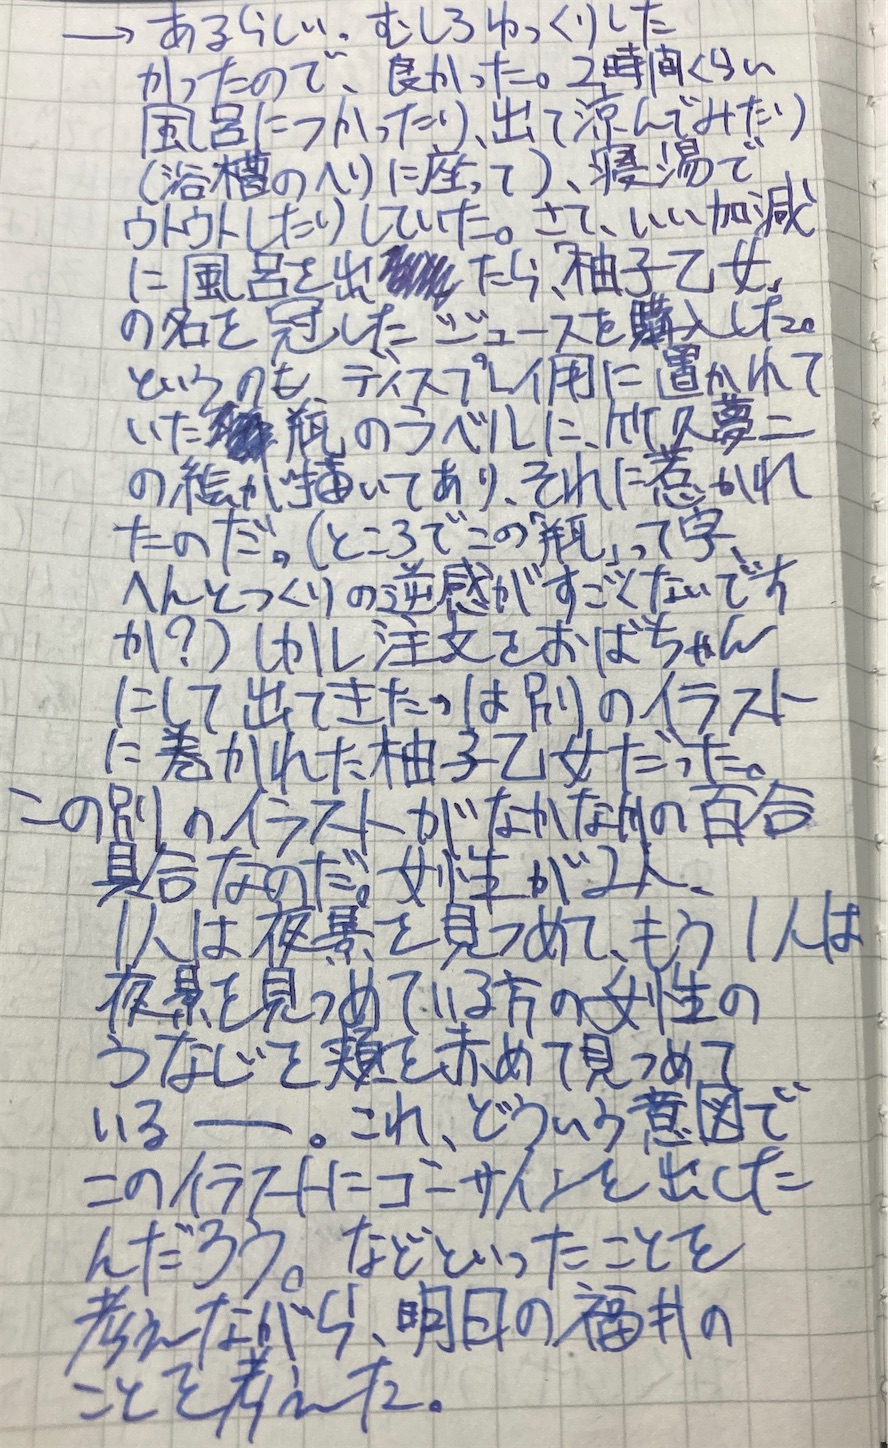 → あるらしい。むしろゆっくりした
かったので、良かった。2時間くらい
風呂につかったり、出て涼んでみたり
(浴槽のへりに座って)、寝湯で
ウトウトしたりしていた。さて、いい加減
に風呂を出たら、「柚子乙女」
の名を冠したジュースを購入した。
というのもディスプレイ用に置かれて
いた瓶のラベルに、竹久夢二
の絵が描いてあり、それに惹かれ
たのだ。(ところでこの「瓶」って字、
へんとつくりの逆感がすごくないです
か?)しかし注文をおばちゃん
にして出てきたのは別のイラスト
に巻かれた柚子乙女だった。
この別のイラストがなかなかの百合
具合なのだ。女性が2人、
1人は夜景を見つめて、もう1人は
夜景を見つめている方の女性の
うなじを頬を赤めて見つめて
いる――。これ、どういう意図で
このイラストにゴーサインを出した
んだろう。などといったことを
考えながら、明日の福井の
ことを考えた。